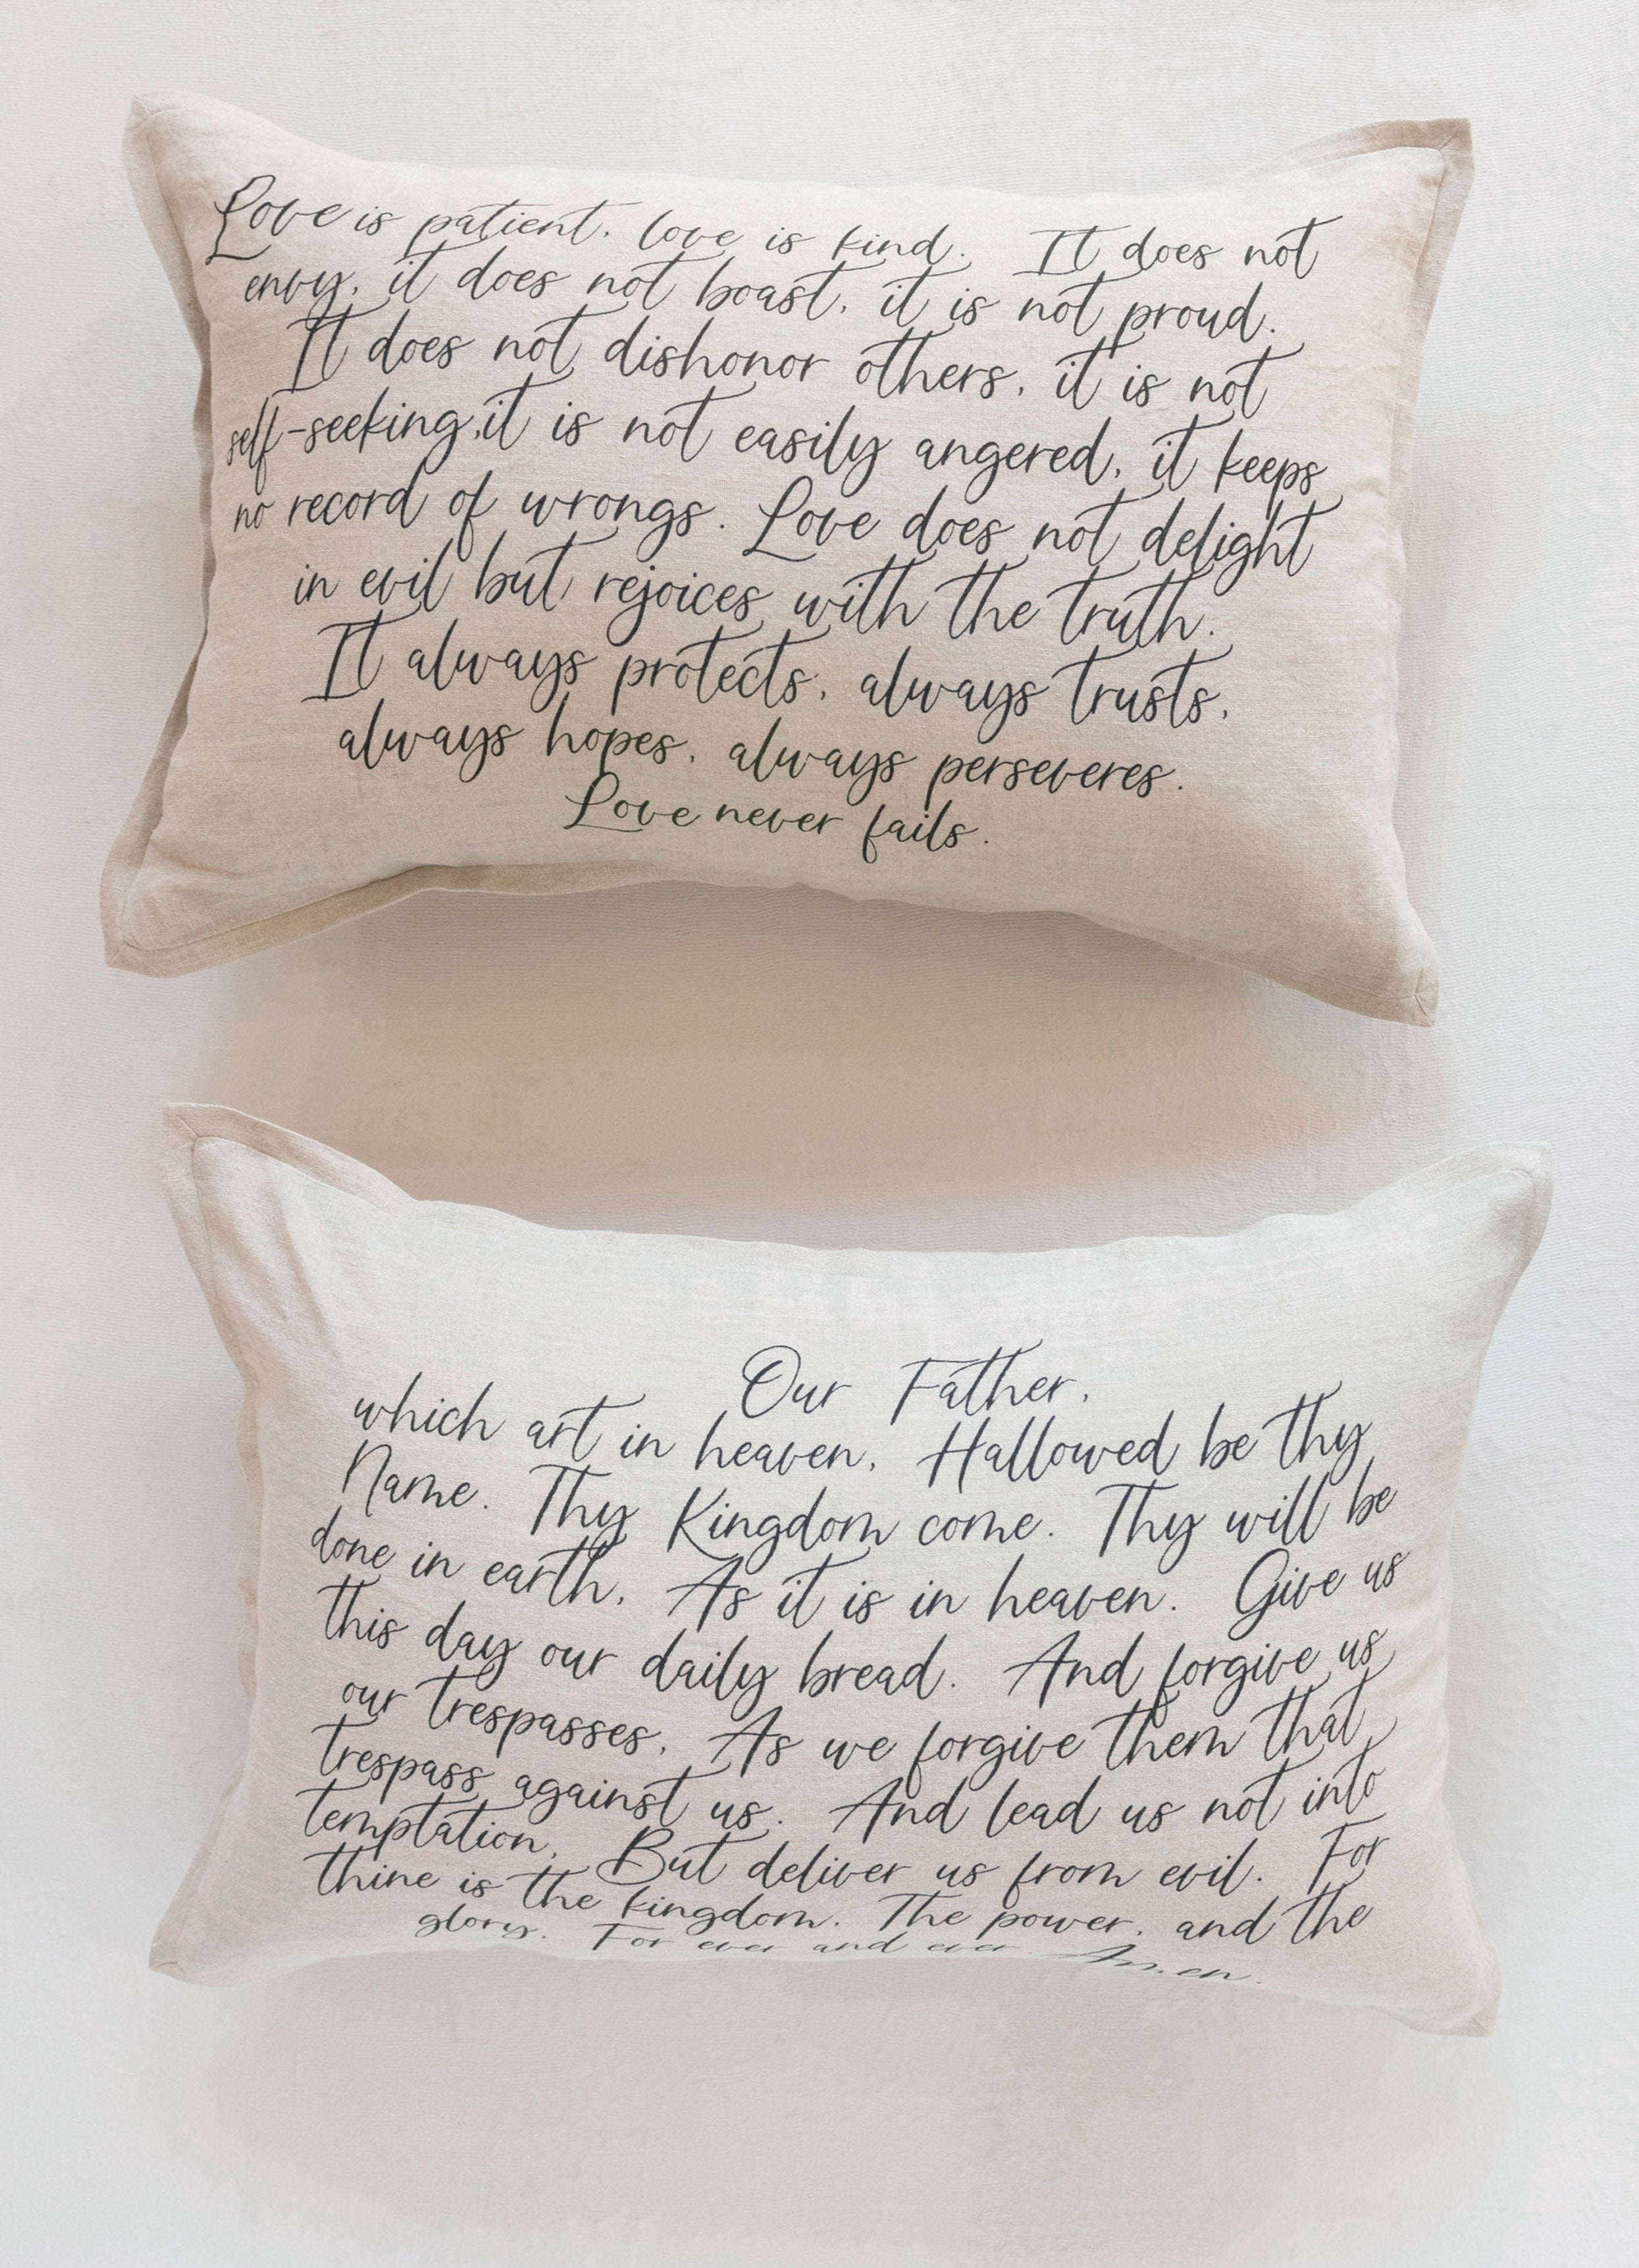 Love is patient, love is kind. It does not
envy, it does not boast, it is not proud.
It does not dishonor others, it is not
self-seeking, it is not easily angered, it keeps
no record of wrongs. Love does not delight
in evil but rejoices with the truth.
It always protects, always trusts,
always hopes, always perseveres.
Love never fails.
Our Father,
which art in heaven, Hallowed be thy
Name. Thy Kingdom come. Thy will be
done in earth, As it is in heaven. Give us
this day our daily bread. And forgive us
our trespasses, As we forgive them that
trespass against us. And lead us not into
temptation, But deliver us from evil. For
thine is the kingdom, The power, and the
glory. For ever and ever. Amen.